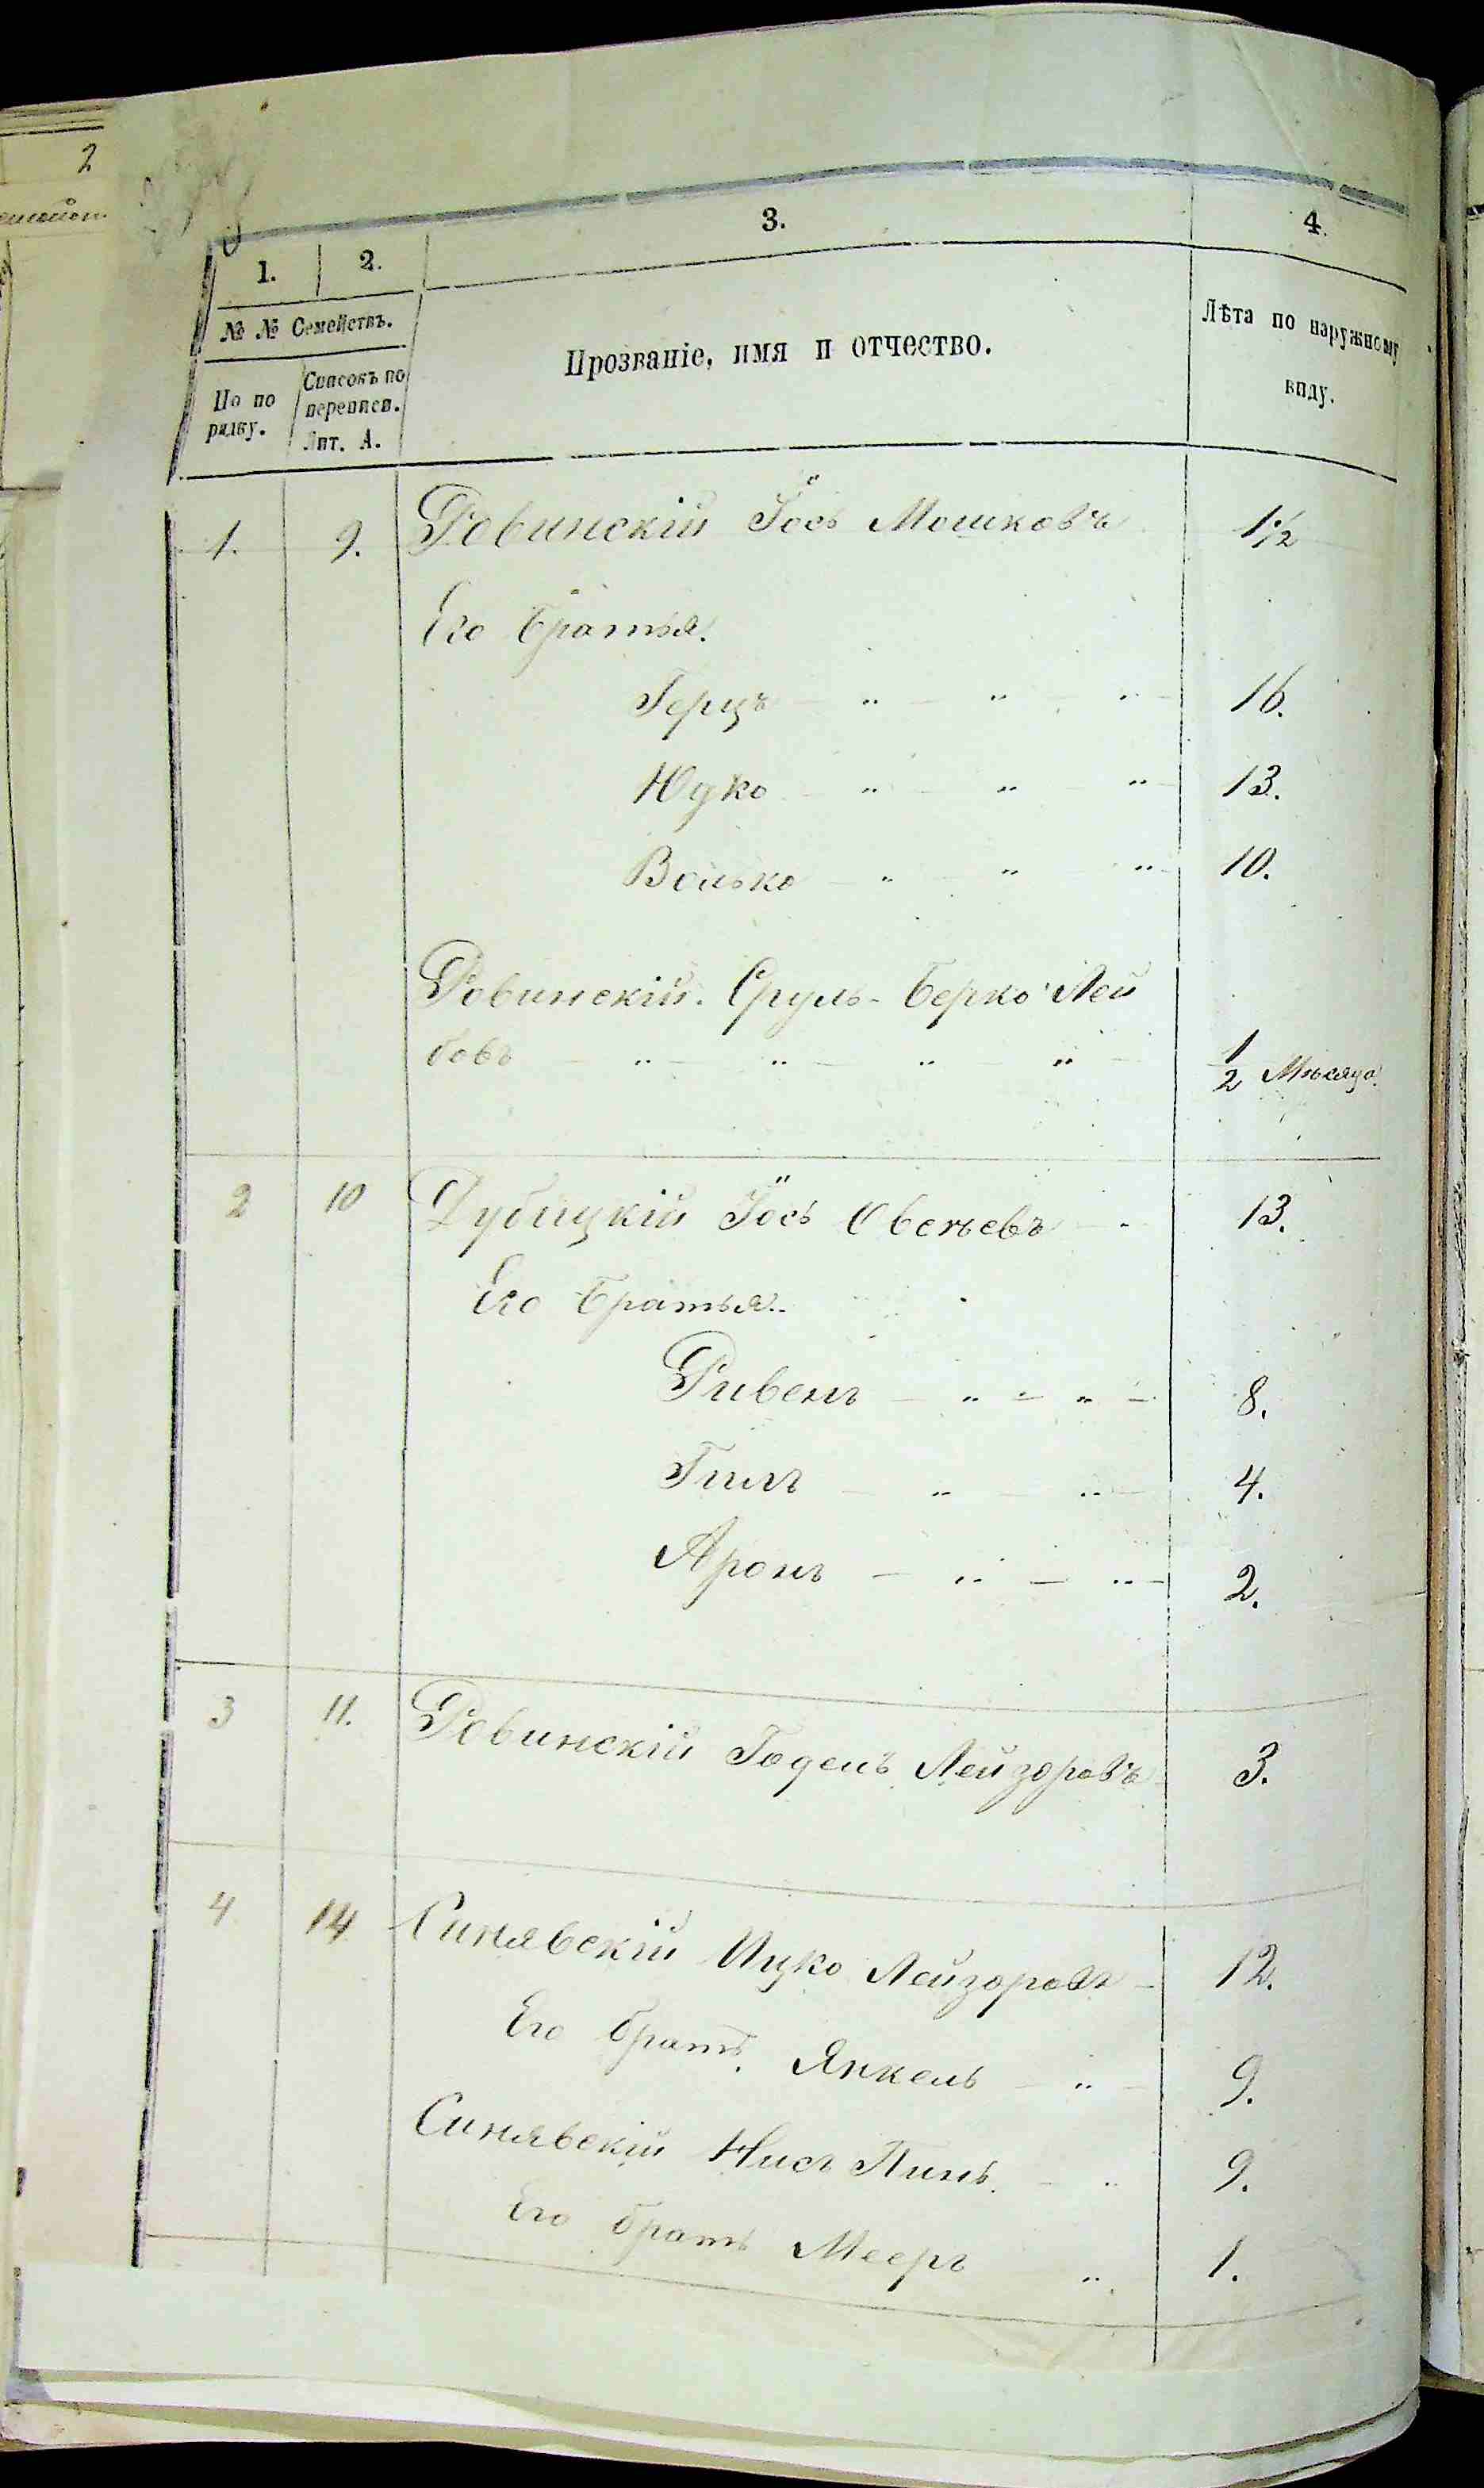 2
3.
4.
1.
2.
№ № Семействъ.
Прозваніе, имя и отчество.
Лѣта по наружному
виду.
По по
рядку.
Списокъ по
переписи.
Лит. А.
1. 9. Ровинскій Іось Мошковъ 1 1/2
Его братья.
Герцъ — " — " — " — 16.
Юдко — " — " — " — 13.
Волько — " — " — " — 10.
Ровинскій. Сруль-Берко Лей
бовъ — " — " — " — " — 1/2 Мѣсяца.
2 10 Дубицкій Іось Овсѣевъ — 13.
Его братья.
Рувенъ — " — " — 8.
Гилъ — " — " — 4.
Аронъ — " — " — 2.
3 11. Ровинскій Годель Лейзоровъ 3.
4 14 Синявскій Ицко Лейзоровъ — 12.
Его братъ. Янкель — " — 9.
Синявскій Нисъ Пинь. — " 9.
Его братъ Мееръ " 1.